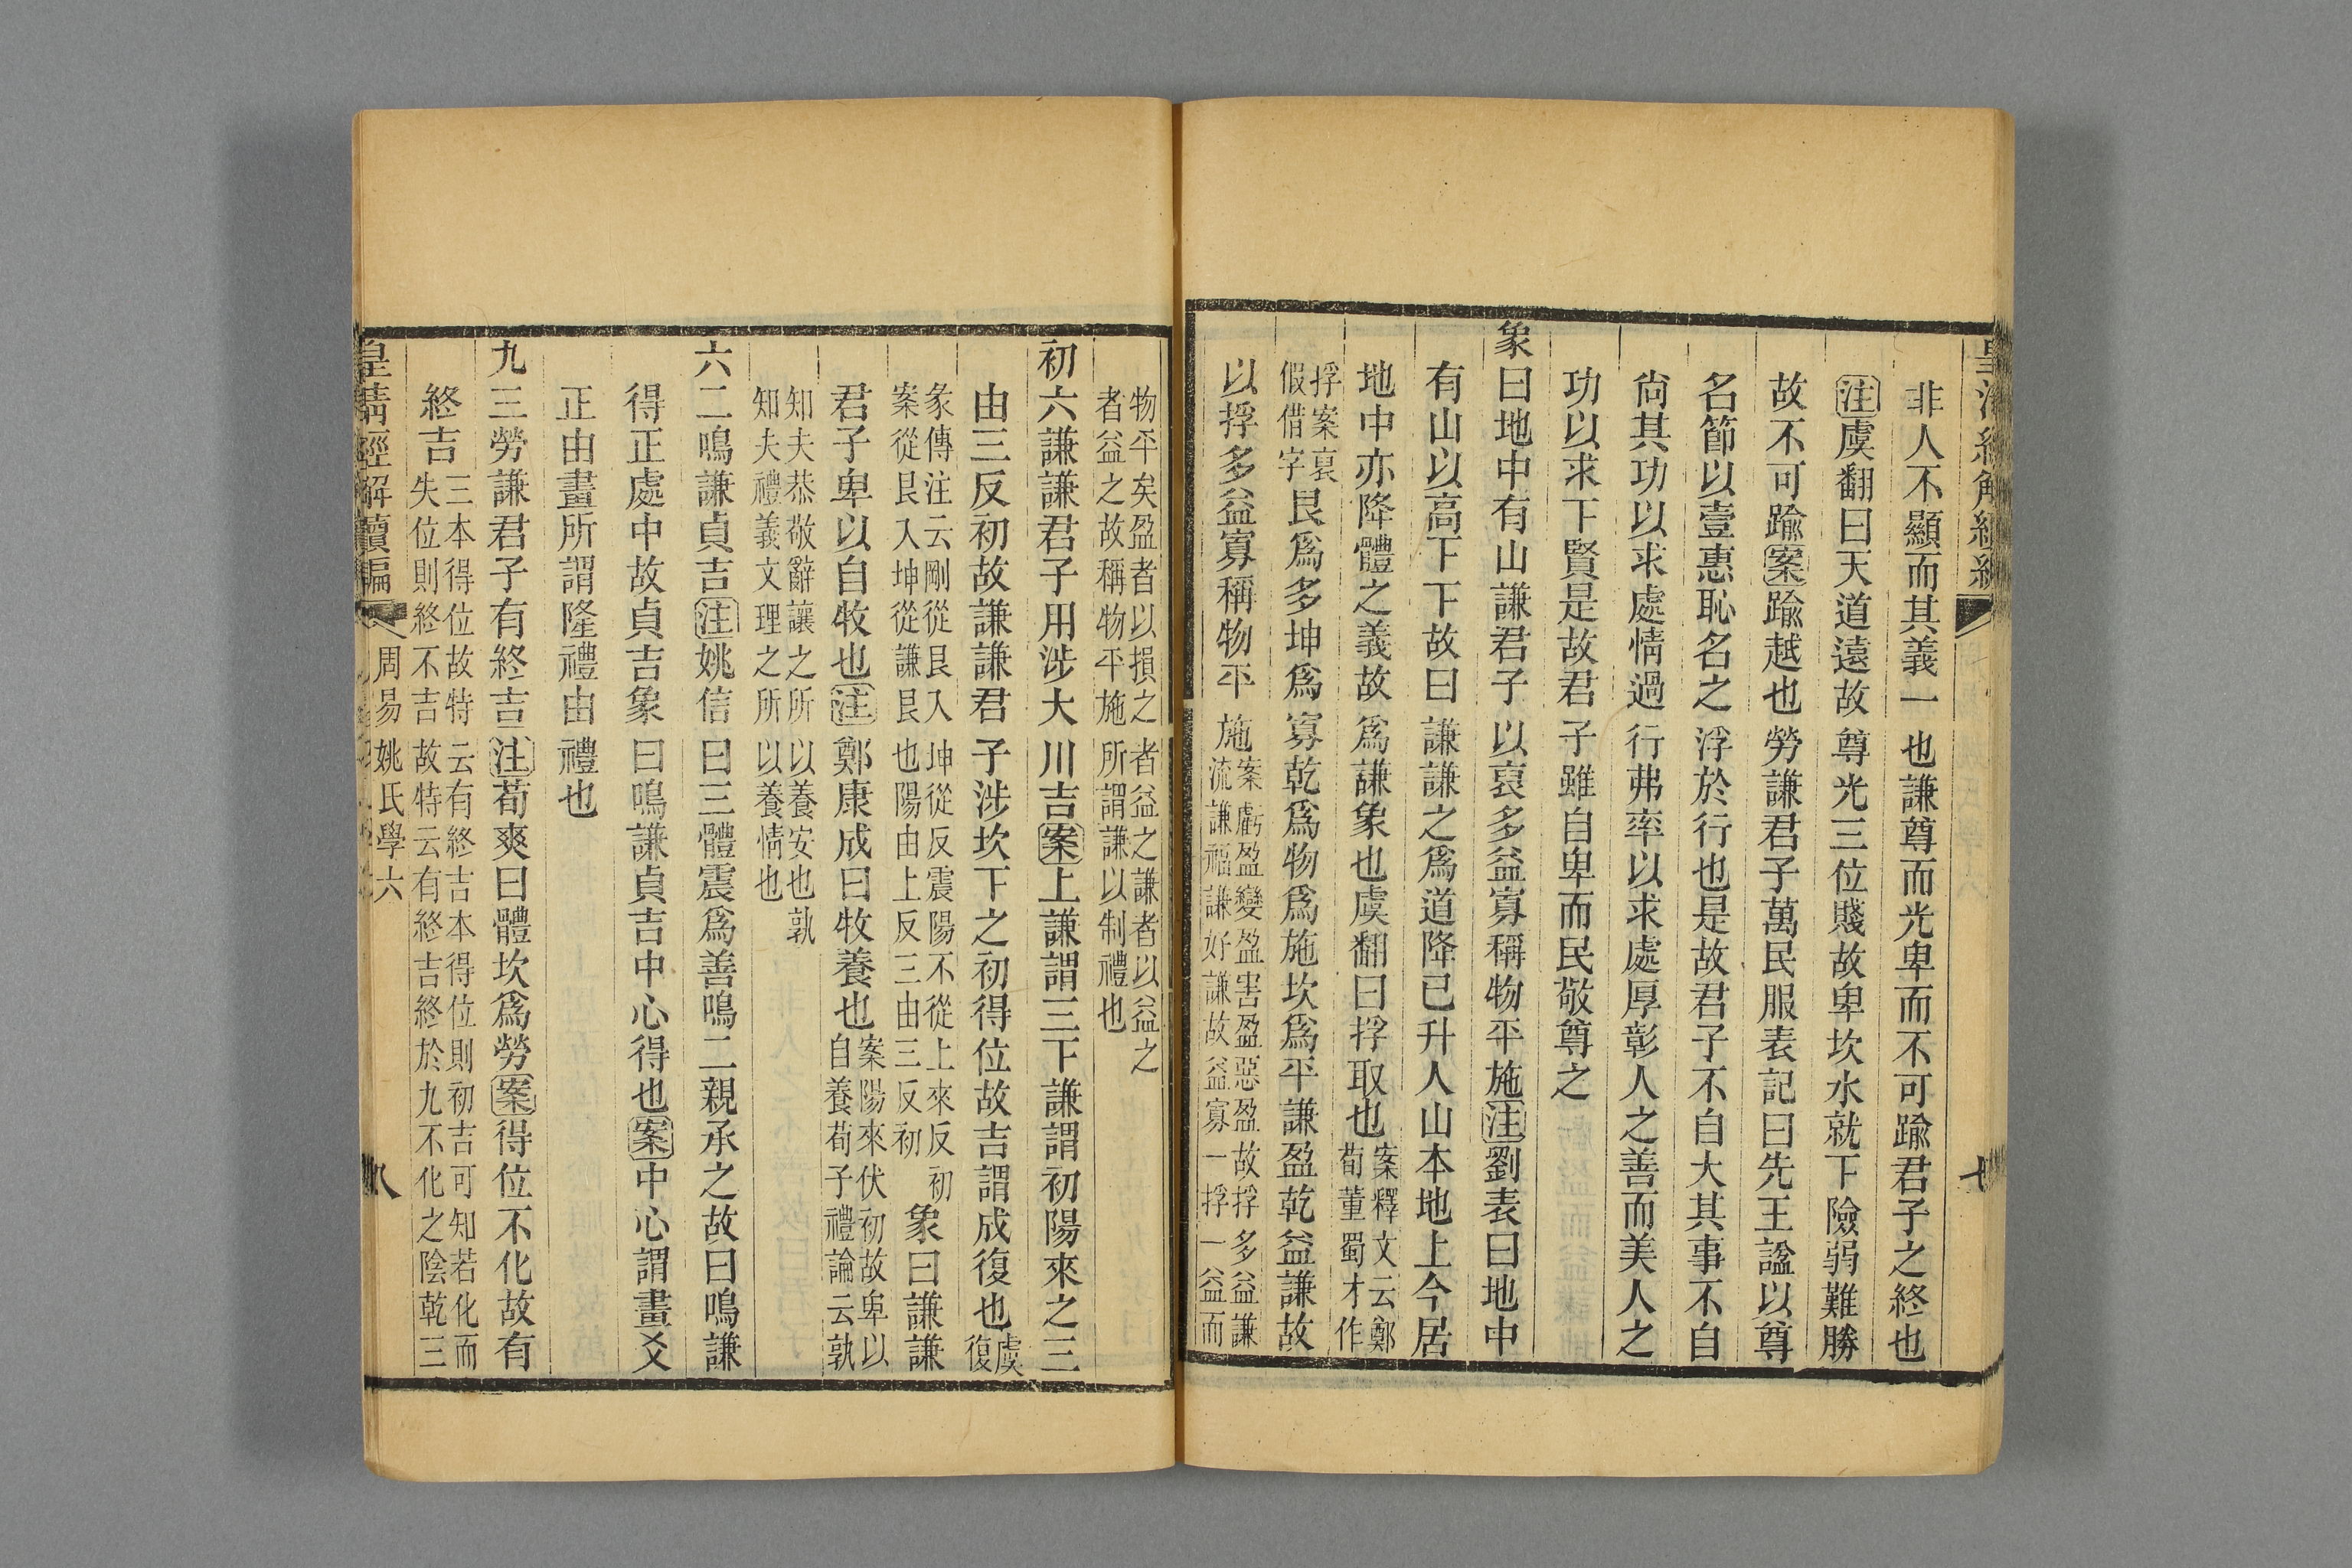 非人不顯而其義一也謙尊而光卑而不可踰君子之終也
注虞翻曰天道遠故尊光三位賤故卑坎水就下險弱難勝
故不可踰案踰越也勞謙君子萬民服表記曰先王諡以尊
名節以壹惠恥名之浮於行也是故君子不自大其事不自
尚其功以求處情過行弗率以求處厚彰人之善而美人之
功以求下賢是故君子雖自卑而民敬尊之
象曰地中有山謙君子以裒多益寡稱物平施注劉表曰地中
有山以高下下故曰謙謙之爲道降己升人山本地上今居
地中亦降體之義故爲謙象也虞翻曰捊取也案釋文云鄭
荀董蜀才作
捊案裒
假借字艮爲多坤爲寡乾爲物爲施坎爲平謙盈乾益謙故
以捊多益寡稱物平施案虧盈變盈害盈惡盈故捊多益謙
流謙福謙好謙故益寡一捊一益而
物平矣盈者以損之者益之謙者以益之
者益之故稱物平施所謂謙以制禮也
初六謙謙君子用涉大川吉案上謙謂三下謙謂初陽來之三
由三反初故謙謙君子涉坎下之初得位故吉謂成復也虞
復
彖傳注云剛從艮入坤從反震陽不從上來反初
案從艮入坤從謙艮也陽由上反三由三反初象曰謙謙
君子卑以自牧也注鄭康成曰牧養也案陽來伏初故卑以
自養荀子禮論云孰
知夫恭敬辭讓之所以養安也孰
知夫禮義文理之所以養情也
六二鳴謙貞吉注姚信曰三體震爲善鳴二親承之故曰鳴謙
得正處中故貞吉象曰鳴謙貞吉中心得也案中心謂畫爻
正由畫所謂隆禮由禮也
九三勞謙君子有終吉注荀爽曰體坎爲勞案得位不化故有
終吉三本得位故特云有終吉本得位則初吉可知若化而
失位則終不吉故特云有終吉終於九不化之陰乾三
皇清經解續編 周易姚氏學六 八